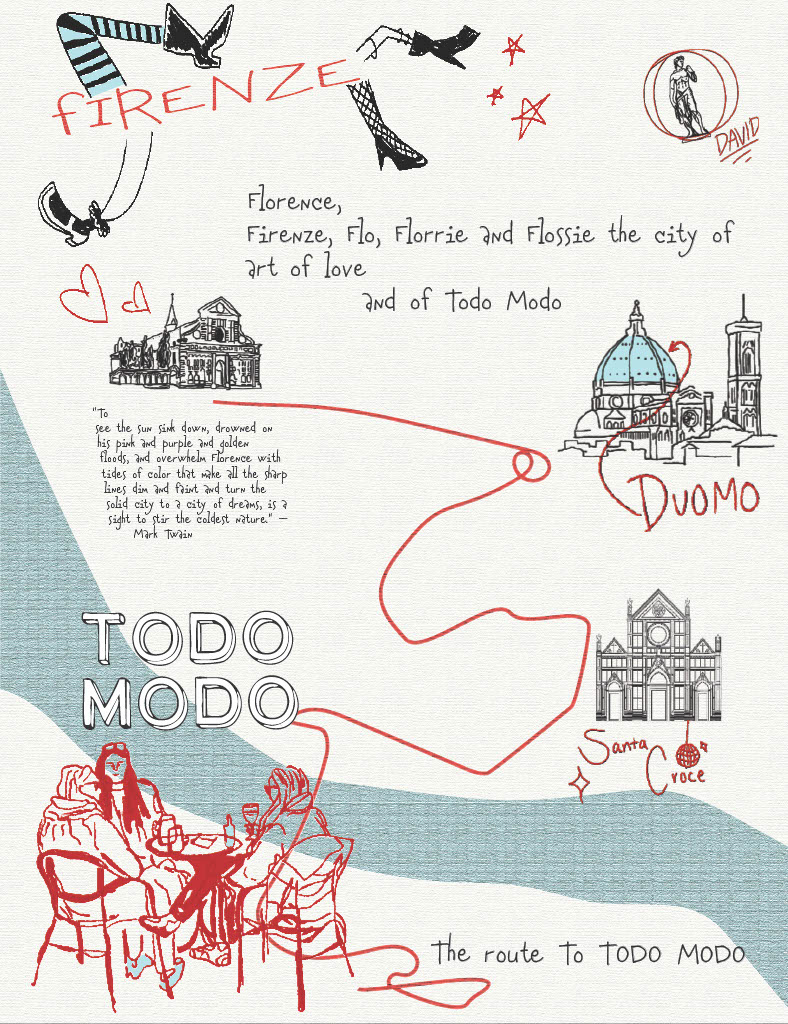 fIRENZE
DAVID
Florence,
Firenze, Flo, Florrie and Flossie the city of
art of love
and of Todo Modo
"To
see the sun sink down, drowned on
his pink and purple and golden
floods, and overwhelm Florence with
tides of color that make all the sharp
lines dim and faint and turn the
solid city to a city of dreams, is a
sight to stir the coldest nature." —
Mark Twain
DUOMO
TODO
MODO
Santa
Croce
The route To TODO MODO